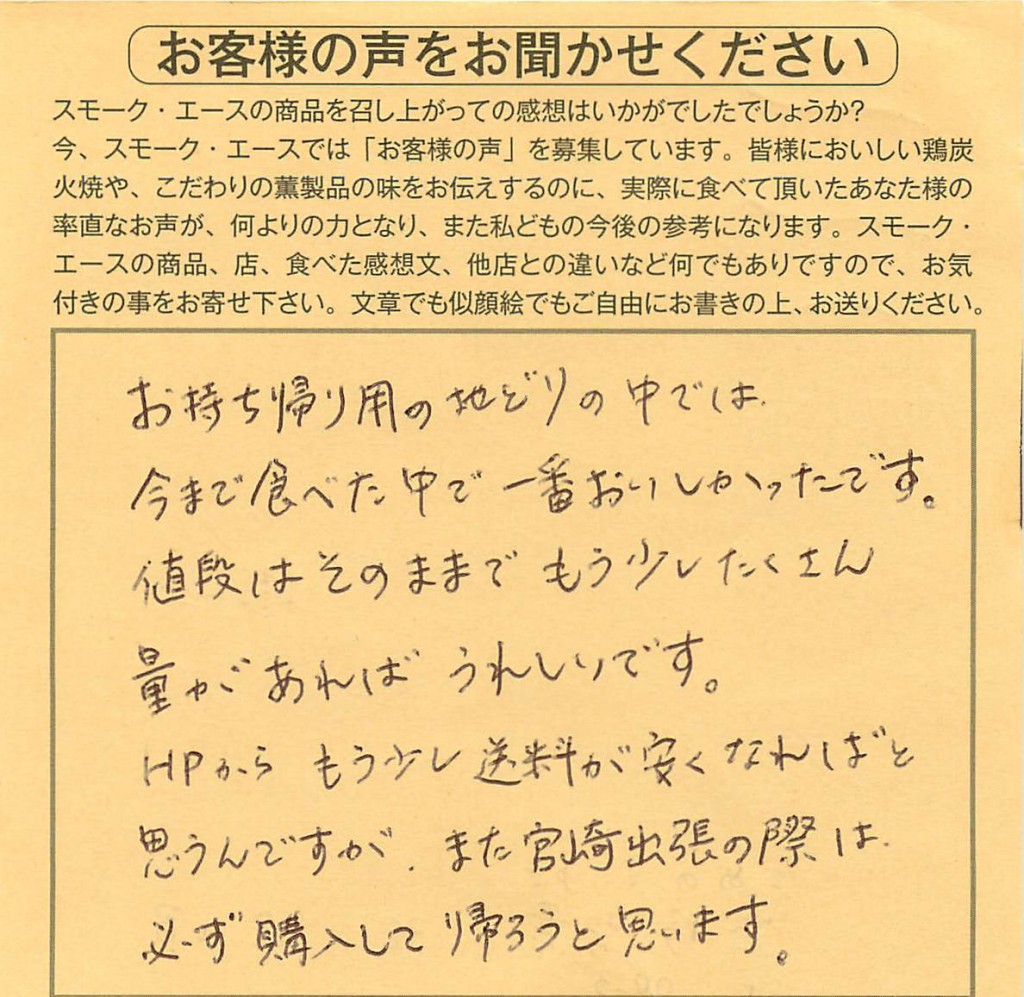 お客様の声をお聞かせください
スモーク・エースの商品を召し上がっての感想はいかがでしたでしょうか?
今、スモーク・エースでは「お客様の声」を募集しています。皆様においしい鶏炭
火焼や、こだわりの薫製品の味をお伝えするのに、実際に食べて頂いたあなた様の
率直なお声が、何よりの力となり、また私どもの今後の参考になります。スモーク・
エースの商品、店、食べた感想文、他店との違いなど何でもありですので、お気
付きの事をお寄せ下さい。文章でも似顔絵でもご自由にお書きの上、お送りください。
お持ち帰り用の地どりの中では、
今まで食べた中で一番おいしかったです。
値段はそのままでもう少したくさん
量があればうれしいです。
HPからもう少し送料が安くなればと
思うんですが、また宮崎出張の際は、
必ず購入して帰ろうと思います。